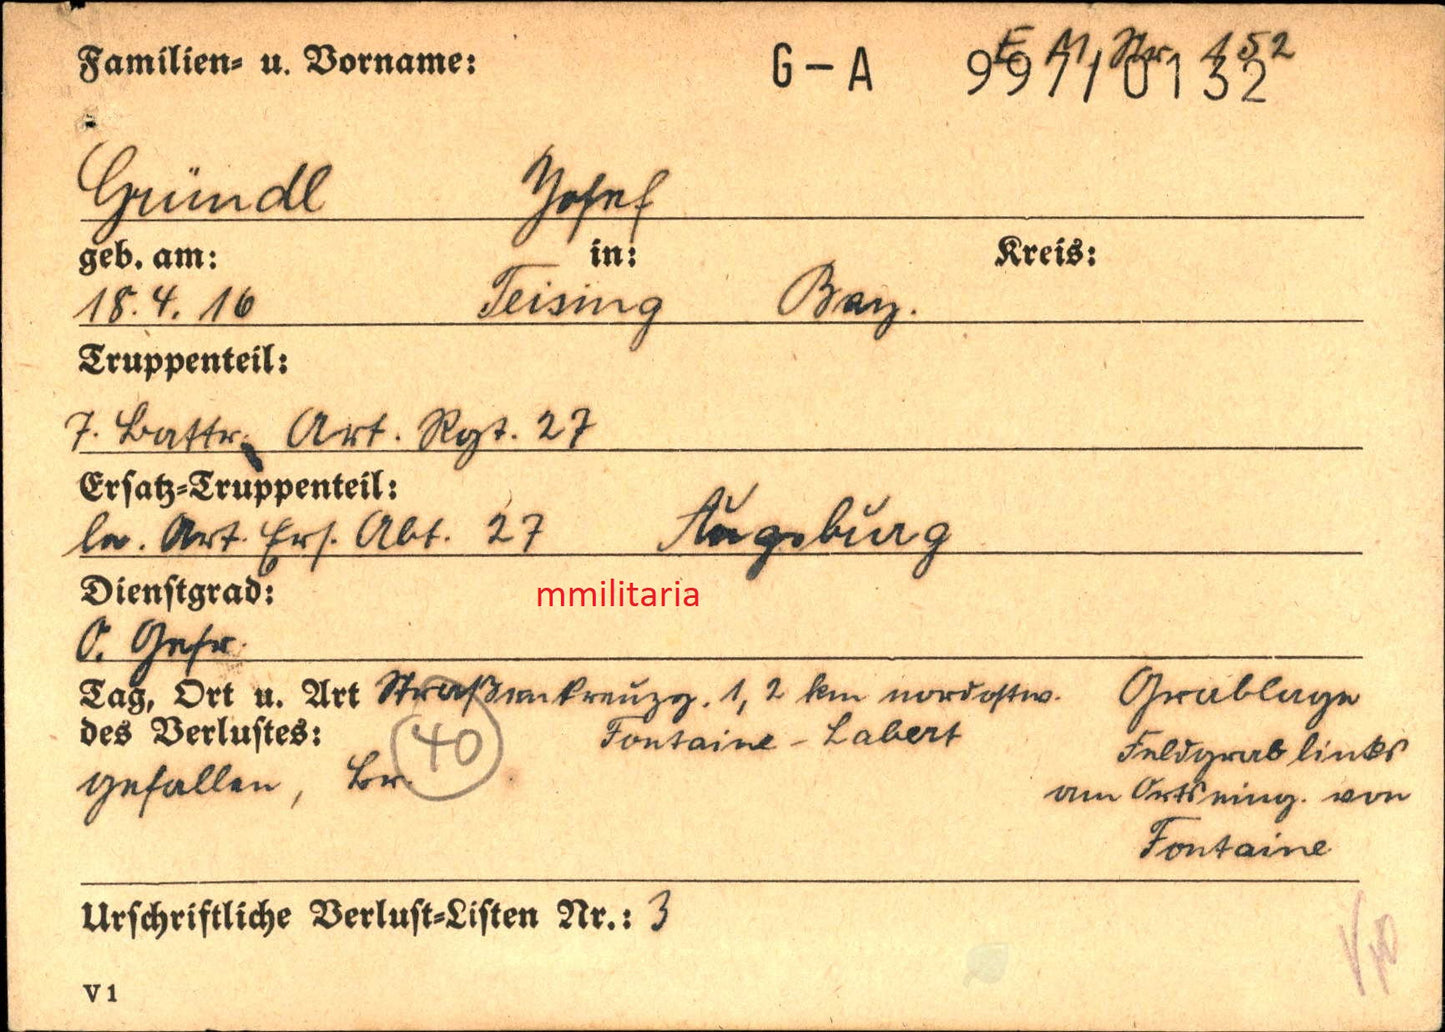 Familien- u. Vorname: G-A 997/0132
E M Str. 152
Gründl Josef
geb. am: in: Kreis:
18. 4. 16 Teising Bay.
Truppenteil:
7. Battr. Art. Rgt. 27
Ersatz-Truppenteil:
le. Art. Ers. Abt. 27 Augsburg
Dienstgrad:
mmilitaria
O. Gefr.
Tag, Ort u. Art Straßenkreuzg. 1,2 km nordostw. Grablage
des Verlustes: 40 Fontaine - Labert Feldgrab links
gefallen, Br. am Ortseing. von
Fontaine
Urschriftliche Verlust-Listen Nr.: 3
V 1